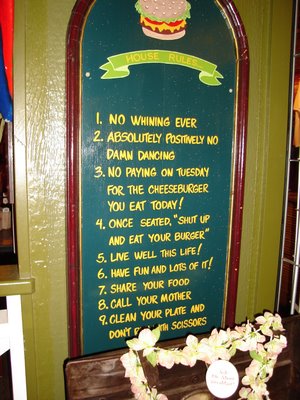 HOUSE RULES
1. NO WHINING EVER
2. ABSOLUTELY POSITIVELY NO
DAMN DANCING
3. NO PAYING ON TUESDAY
FOR THE CHEESEBURGER
YOU EAT TODAY!
4. ONCE SEATED, "SHUT UP
AND EAT YOUR BURGER"
5. LIVE WELL THIS LIFE!
6. HAVE FUN AND LOTS OF IT!
7. SHARE YOUR FOOD
8. CALL YOUR MOTHER
9. CLEAN YOUR PLATE AND
DON'T RUN WITH SCISSORS